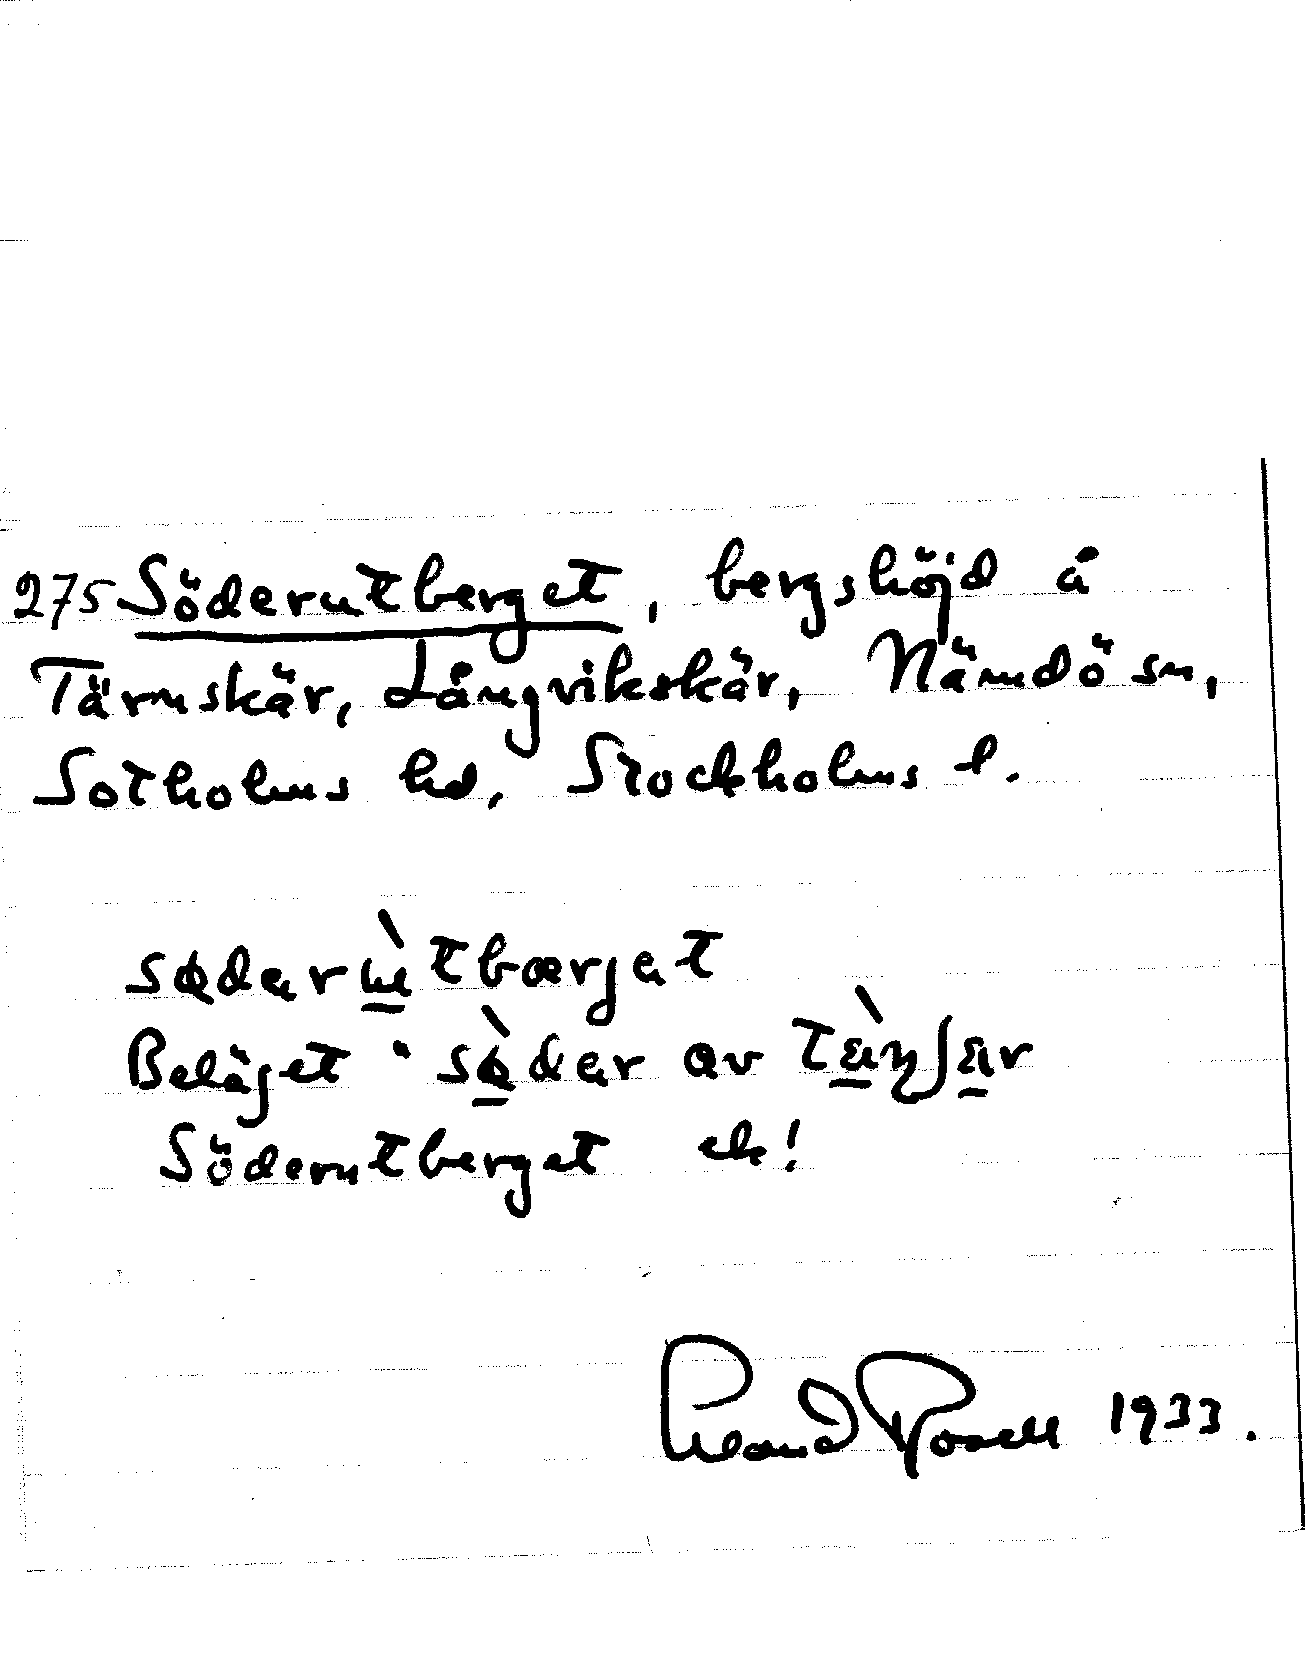 275 Söderutberget, bergshöjd å
Tärnskär, Långvikskär, Nämdö sn,
Sotholms hd, Stockholms l.
sødarùtbærjat
Beläget søder av
Söderutberget ek!
1933.